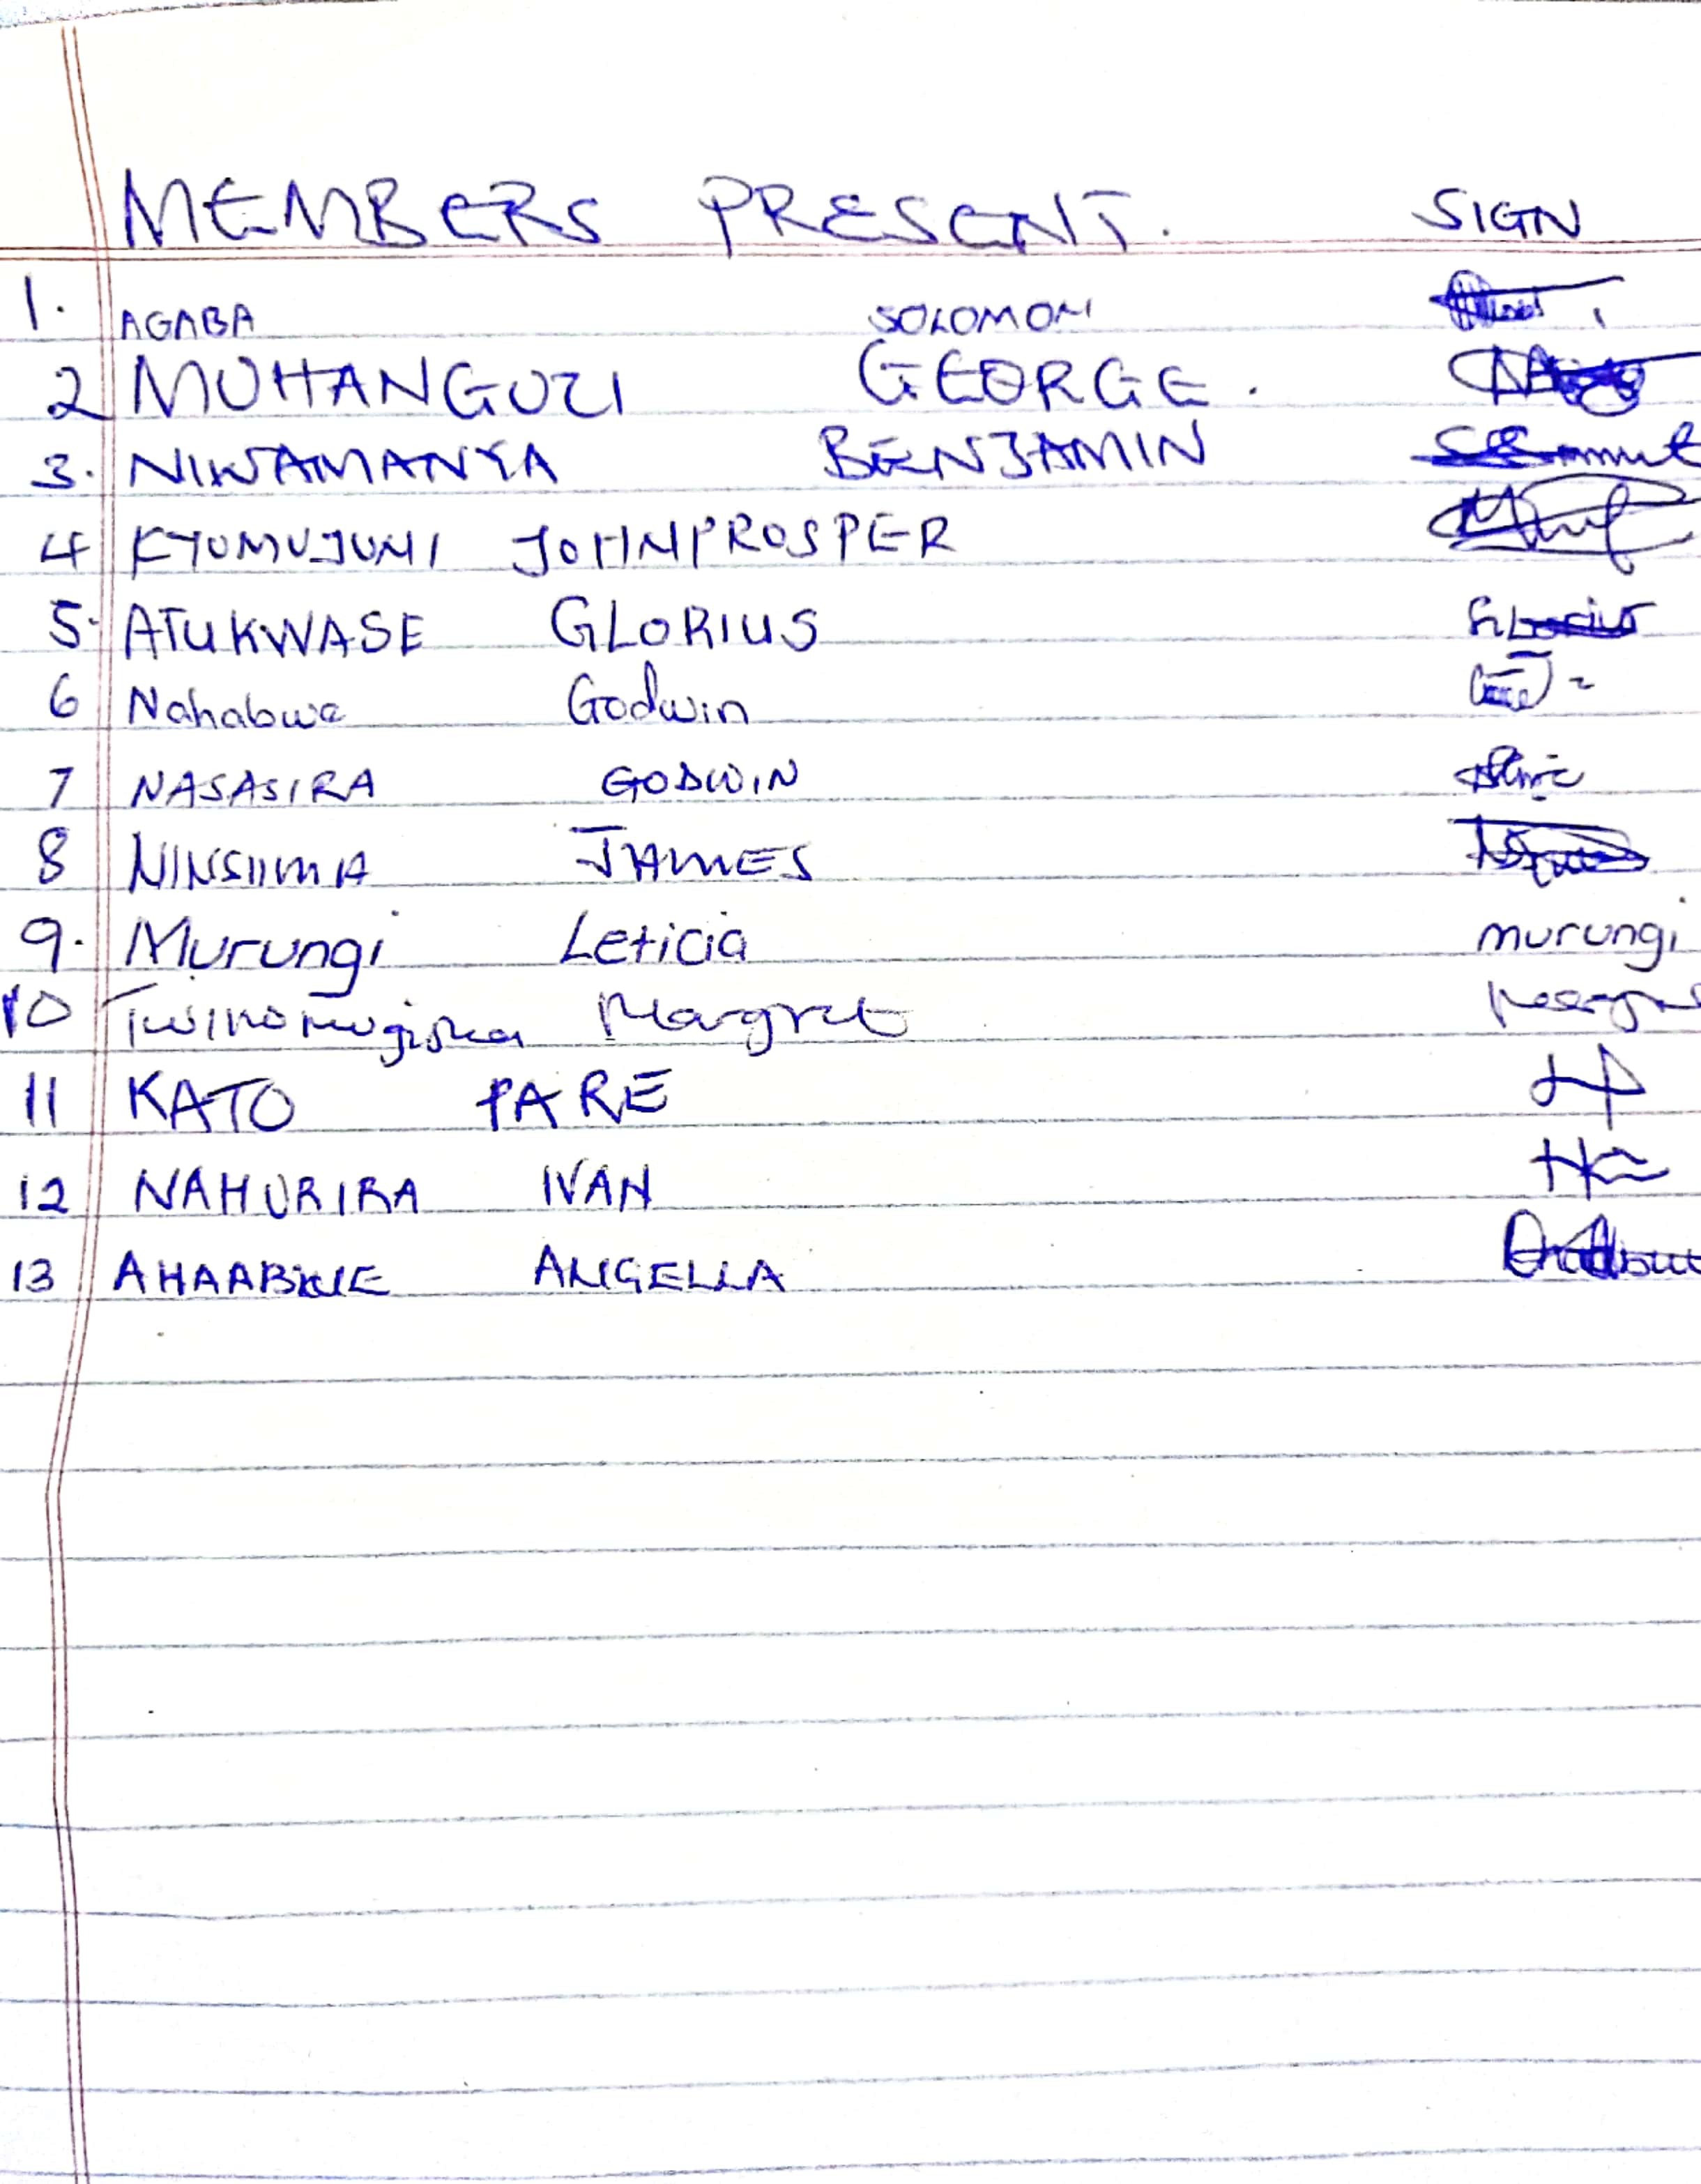 MEMBERS PRESENT. SIGN
1. AGABA SOLOMON
2 MUHANGUZI GEORGE.
3. NIWAMANYA BENJAMIN
4 KYOMUJUNI JOHNPROSPER
5. ATUKWASE GLORIUS
6 Nahabwe Godwin
7 NASASIRA GODWIN
8 NINSIIMA JAMES
9. Murungi Leticia murungi
10 Twinomugisha Margret
11 KATO PARE
12 NAHURIRA IVAN
13 AHAABWE ANGELLA